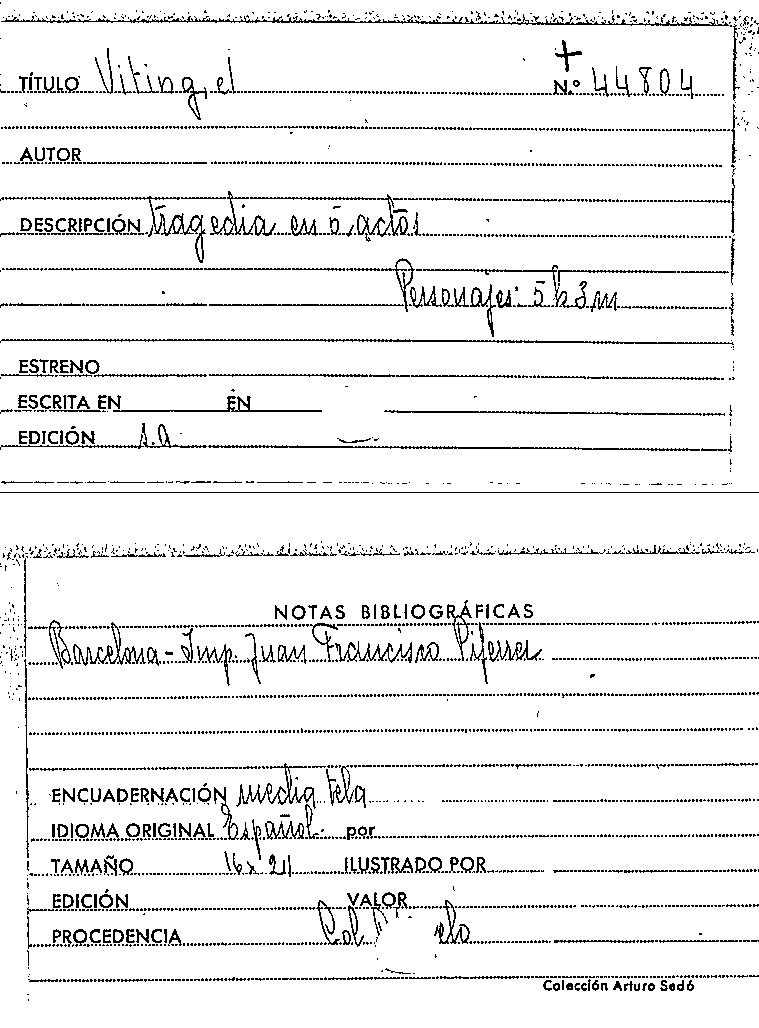 TÍTULO Viting, el N.º 44804
AUTOR
DESCRIPCIÓN tragedia en 5 actos
Personajes: 5 h 3 m
ESTRENO
ESCRITA EN EN
EDICIÓN s.a.
NOTAS BIBLIOGRÁFICAS
Barcelona - Imp. Juan Francisco Piferrer
ENCUADERNACIÓN media tela
IDIOMA ORIGINAL Español por
TAMAÑO 16 x 21 ILUSTRADO POR
EDICIÓN VALOR
PROCEDENCIA Col.
Colección Arturo Sedó